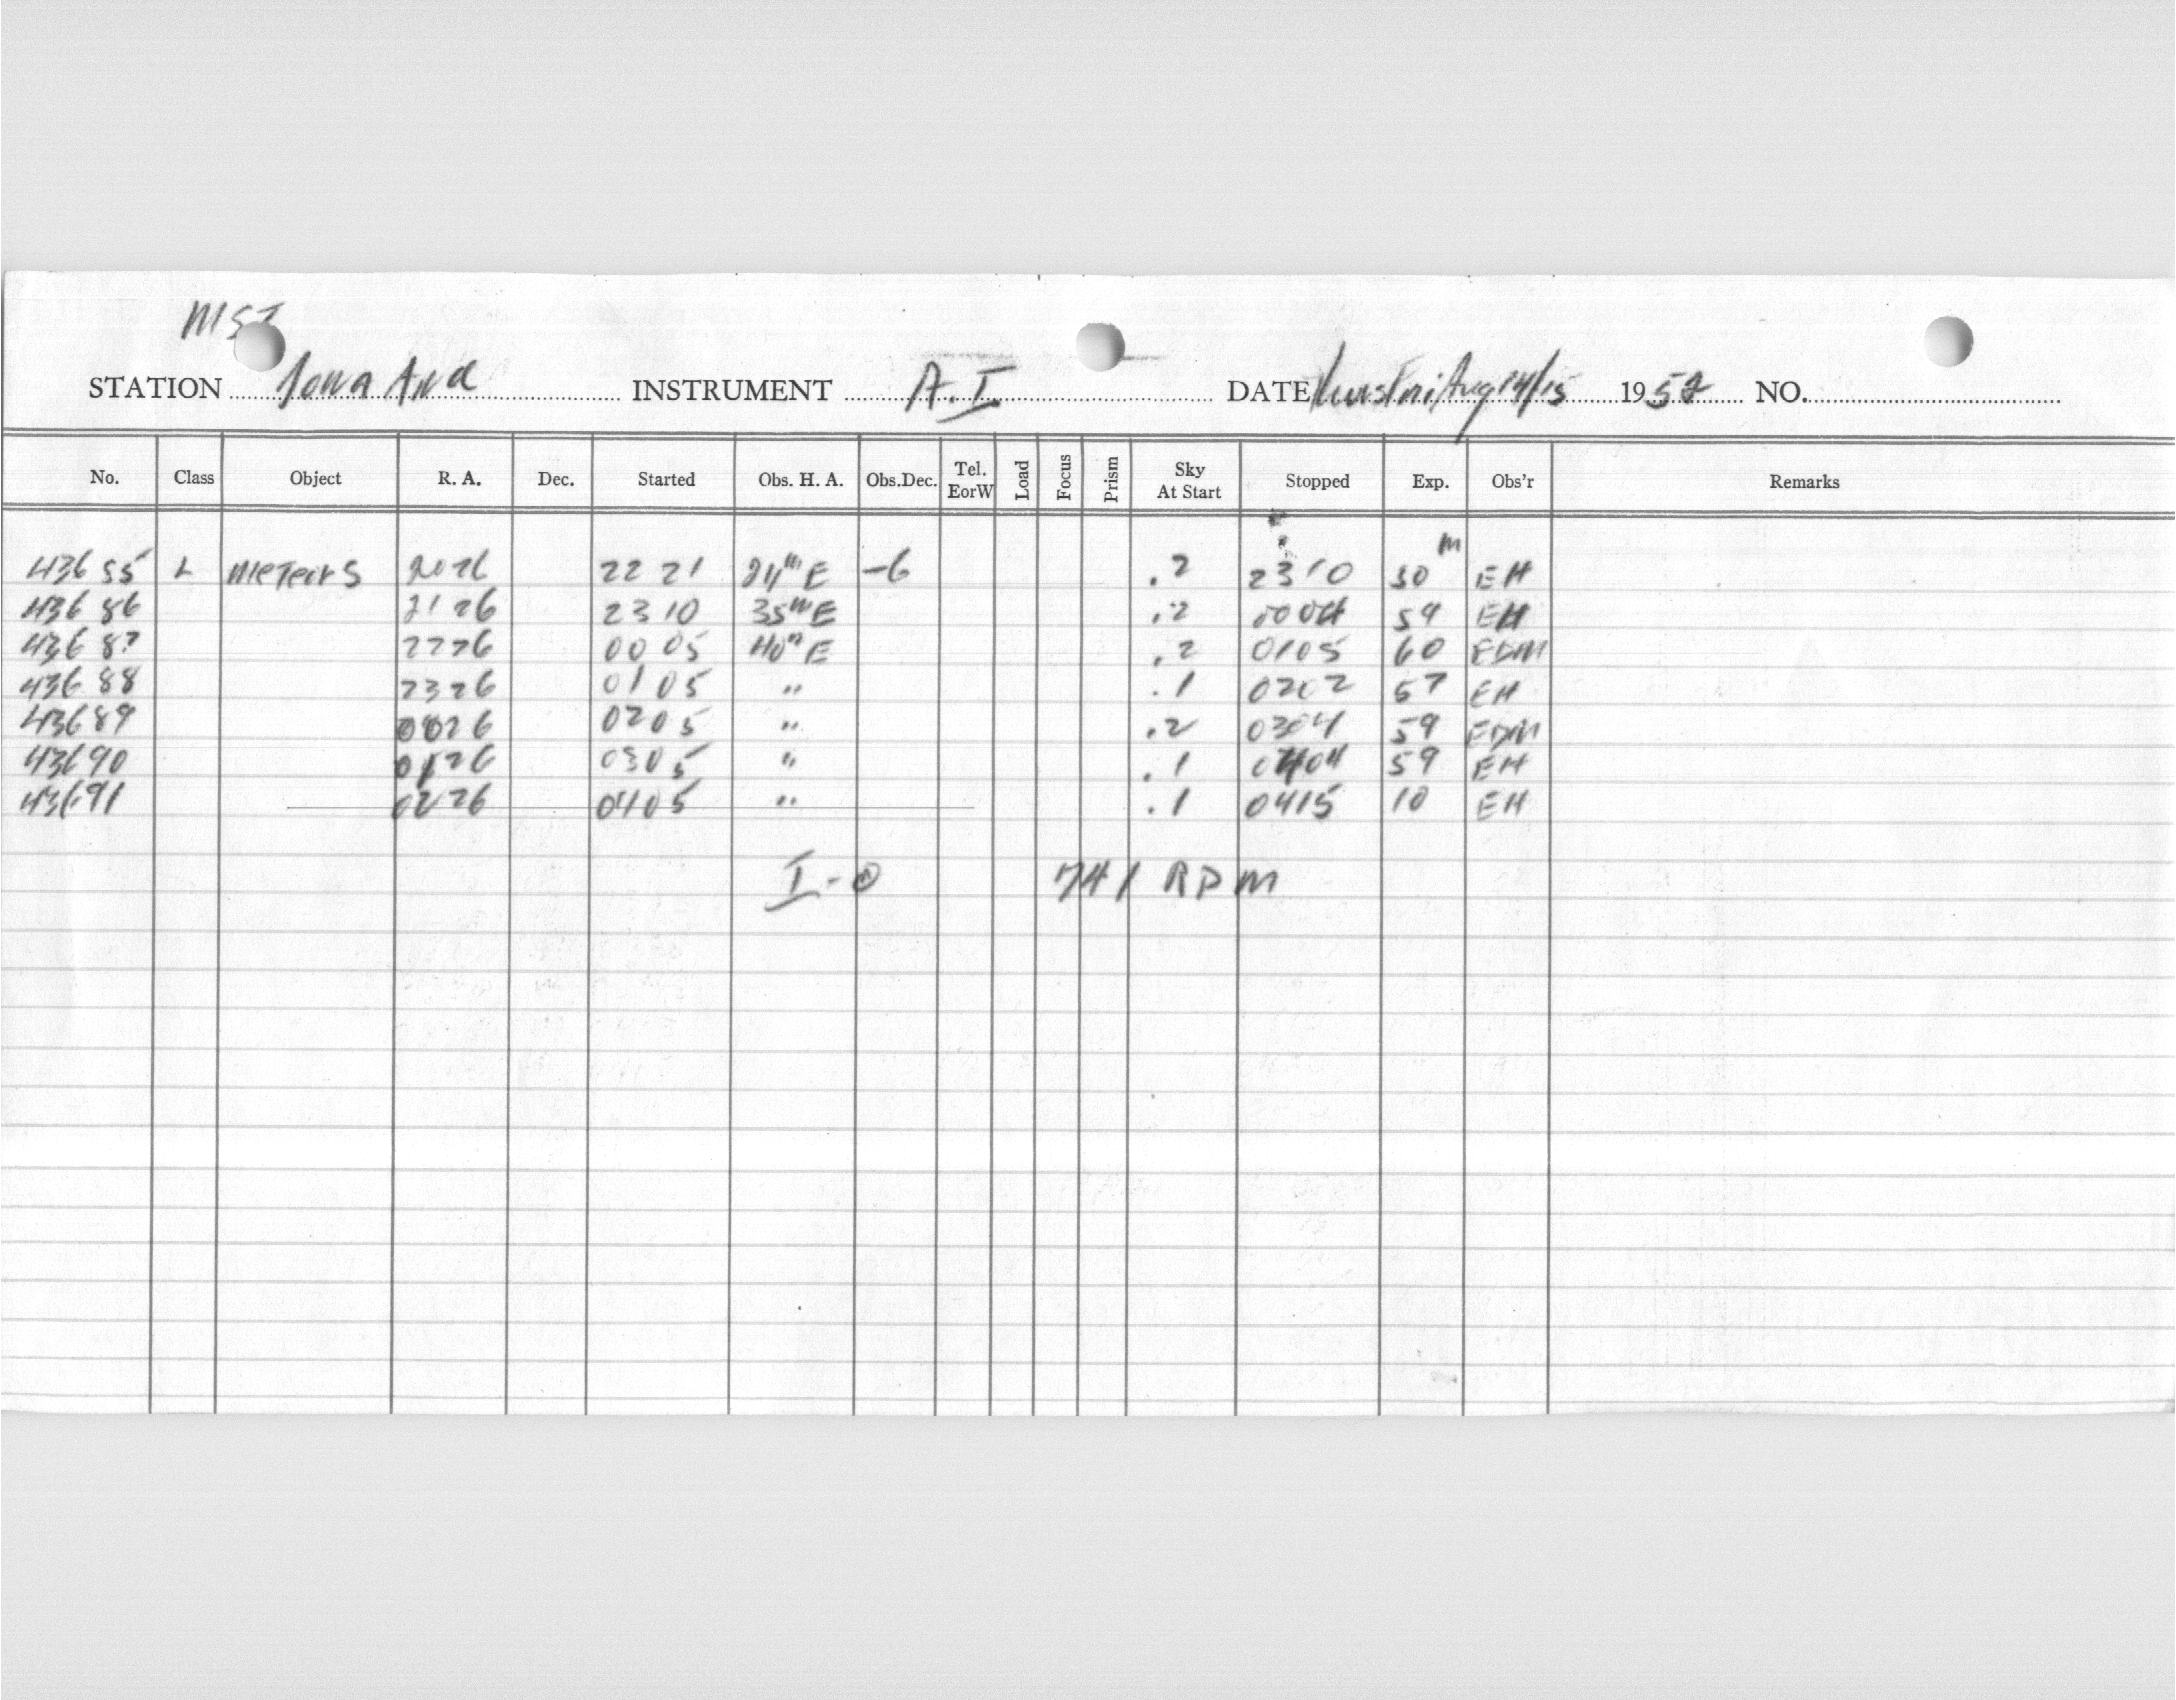 MST
STATION Iowa And INSTRUMENT A.I. DATE Thurs Fri Aug 14/15 1952 NO.
No. Class Object R. A. Dec. Started Obs. H. A. Obs.Dec. Tel. EorW Load Focus Prism Sky At Start Stopped Exp. Obs'r Remarks
m
43685 L Meteors 2026 2221 24m E -6 .2 2310 50 EH
43686 2126 2310 35m E .2 0004 54 EH
43687 2226 0005 40m E .2 0105 60 EDM
43688 2326 0105 " .1 0202 57 EH
43689 0026 0205 " .2 0304 59 EDM
43690 0126 0305 " .1 0404 59 EH
43691 0226 0405 " .1 0415 10 EH
I-0 741 RPM